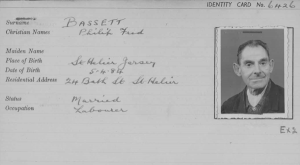 IDENTITY CARD No. 6426
Surname BASSETT
Christian Names Philip Fred
Maiden Name
Place of Birth St Helier Jersey
Date of Birth 5-4-86
Residential Address 24 Bath St St Helier
Status Married
Occupation Labourer